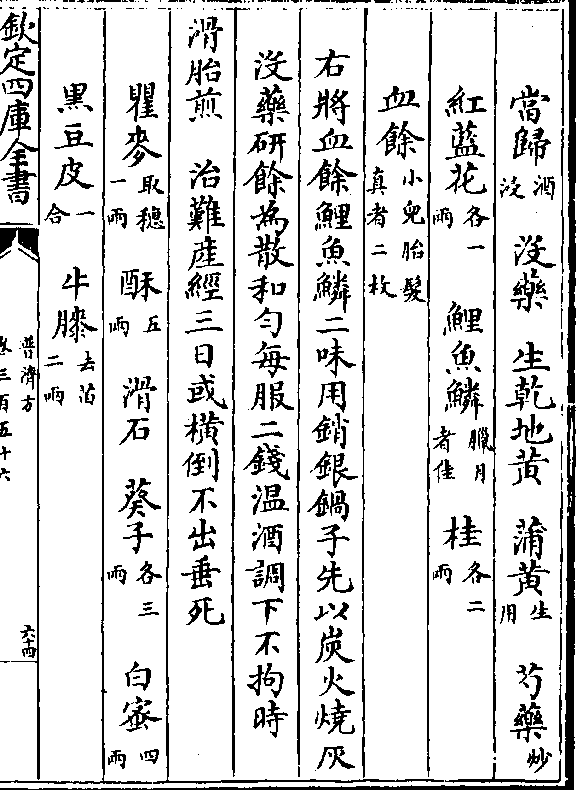 當歸酒沒 沒藥 生乾地黄 蒲黄生用 芍藥炒
紅藍花各一兩 鯉魚鱗臘月者佳 桂各二兩
血餘小兒胎髮真者二枚
右將血餘鯉魚鱗二味用銷銀鍋子先以炭火燒灰
沒藥研餘為散和匀每服二錢温酒調下不拘時
滑胎煎 治難産經三日或横倒不出垂死
瞿麥取穗一兩 酥五兩 滑石 葵子各三兩 白蜜四兩
黑豆皮一合 牛膝去苗二兩
欽定四庫全書
普濟方
卷三百五十六
六十四